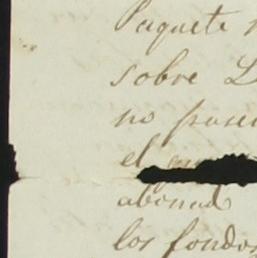 Paquete
sobre L
no pose
el
abonad
los fondos